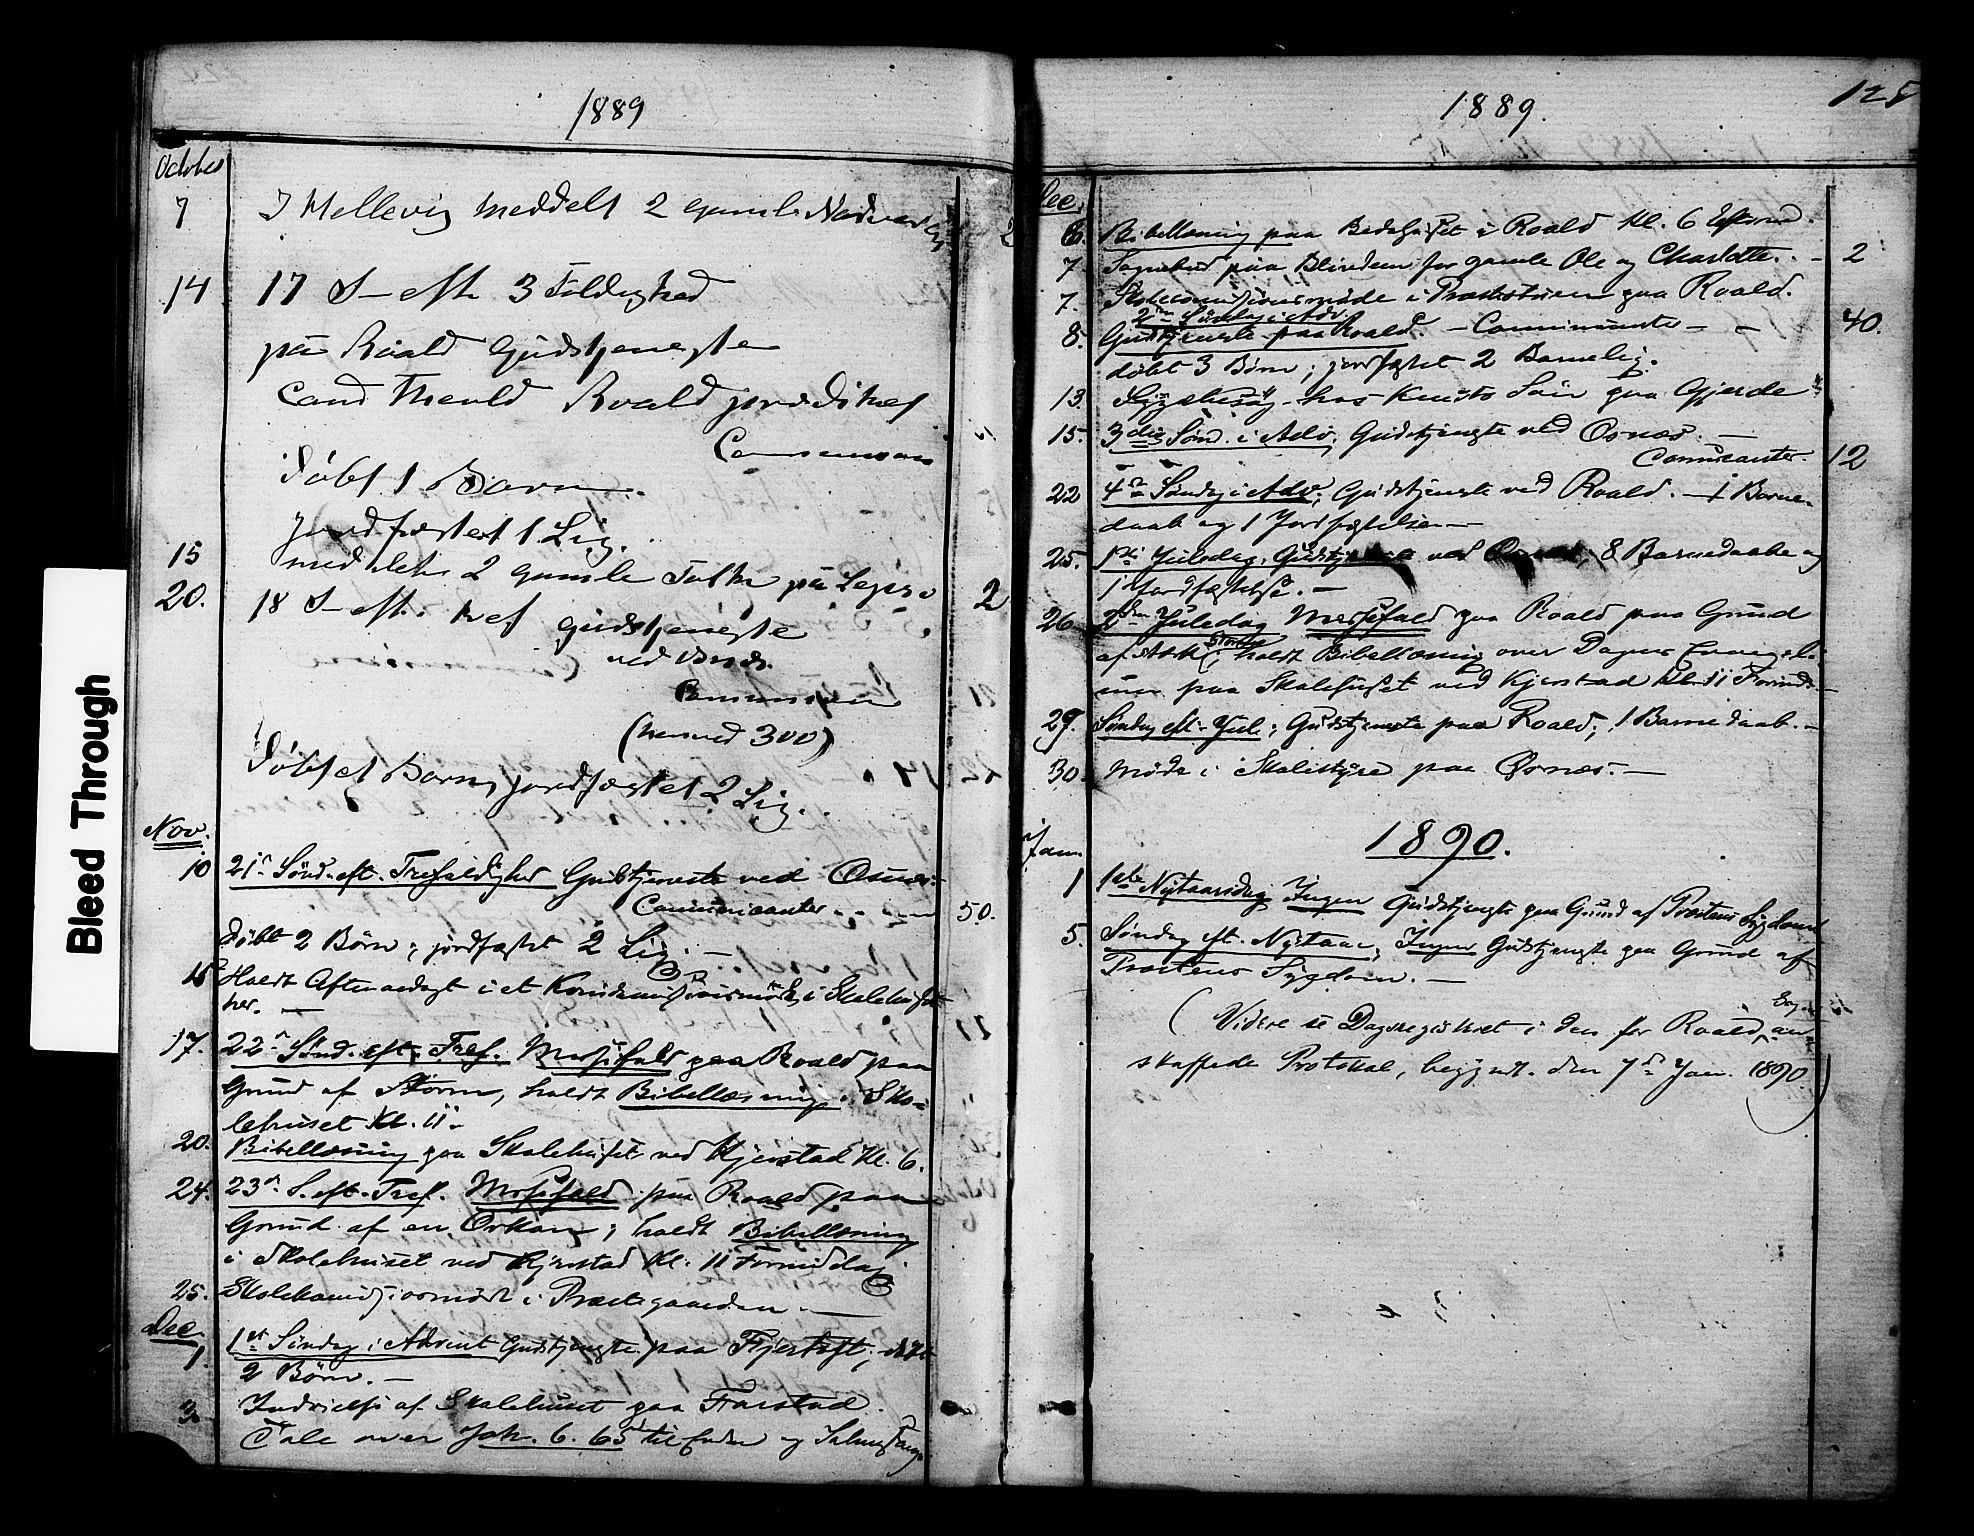 Bleed Through
1889
October
7 I Hellevig meddelt 2 gamle 2
14 17 S. eft. 3 foldighed
på Roald Gudstjeneste
Cand Roald prædiket
Communion
Døbt 1 Barn.
jordfæstet 1 Lig.
15 meddelt 2 gamle Folk på Lepsø 2
20. 18 S. eft. tref gudstjeneste
ved
Communion
(henved 300)
Døbt et Barn, jordfæstet 2 Lig.
Nov.
10 21n Sønd. eft. Trefoldighed Gudstjeneste ved Osnæs.
Communicanter 50.
døbt 2 Børn; jordfæstet 2 Lig. —
15 Holdt Aftensangst i et i Skolehuset
her. —
17. 22n Sønd. eft. Tref. Messefald paa Roald paa
Grund af Storm, holdt Bibellæsning i Sko-
lehuset Kl. 11.
20. Bibellæsning paa Skolehuset ved Kjerstad Kl. 6.
24. 23n S. eft. Tref. Messefald paa Roald paa
Grund af en Orkan; holdt Bibellæsning
i Skolehuset ved Kjerstad Kl. 11 Formiddag.
25. Skolekommissionsmøde i Præstegaarden. —
Dec.
1. 1st Søndag i Advent Gudstjeneste paa Fjertoft; døbt
2 Børn. —
3. Indvielse af Skolehuset paa Farstad.
Tale over Joh. 6. 65 til Enden og Salmesang.
1889. 128
Dec.
6. Bibellæsning paa Bedehuset i Roald Kl. 6 Efterm.
7. Sognebud paa Blindem for gamle Ole og Charlotte. — 2
7. Skolecommissionsmøde i Præstestuen paa Roald.
2den Søndag i Adv.
8. Gudstjeneste paa Roald. — Communicanter — — 40.
døbt 3 Børn; jordfæstet 2 Barnelig.
13. Sygebesøg hos Knuts Søn paa Gjerde
15. 3die Sønd. i Adv. Gudstjeneste ved Osnæs. —
Communicanter. 12
22 4de Søndag i Adv. Gudstjeneste ved Roald. — 1 Barne-
daab og 1 Jordfæstelse —
25. 1ste Juledag. Gudstjeneste ved 8 Barnedaabe og
1 Jordfæstelse. —
26 2den Juledag Messefald paa Roald paa Grund
af Storm; holdt Bibellæsning over Dagens Evangeli-
um paa Skolehuset ved Kjerstad Kl. 11 Formid. —
29. Søndag eft. Jul; Gudstjeneste paa Roald; 1 Barnedaab. —
30. Møde i Skolestyre paa Osnæs. —
1890.
Jan.
1 1ste Nytaarsdag Ingen Gudstjeneste paa Grund af Præstens Sygdom
5. Søndag eft. Nytaar, Ingen Gudstjeneste paa Grund af
Præstens Sygdom. —
(Videre se Dagsregistret i den for Roald Sogn an-
skaffede Protokol, begyndt den 7de Jan. 1890.)